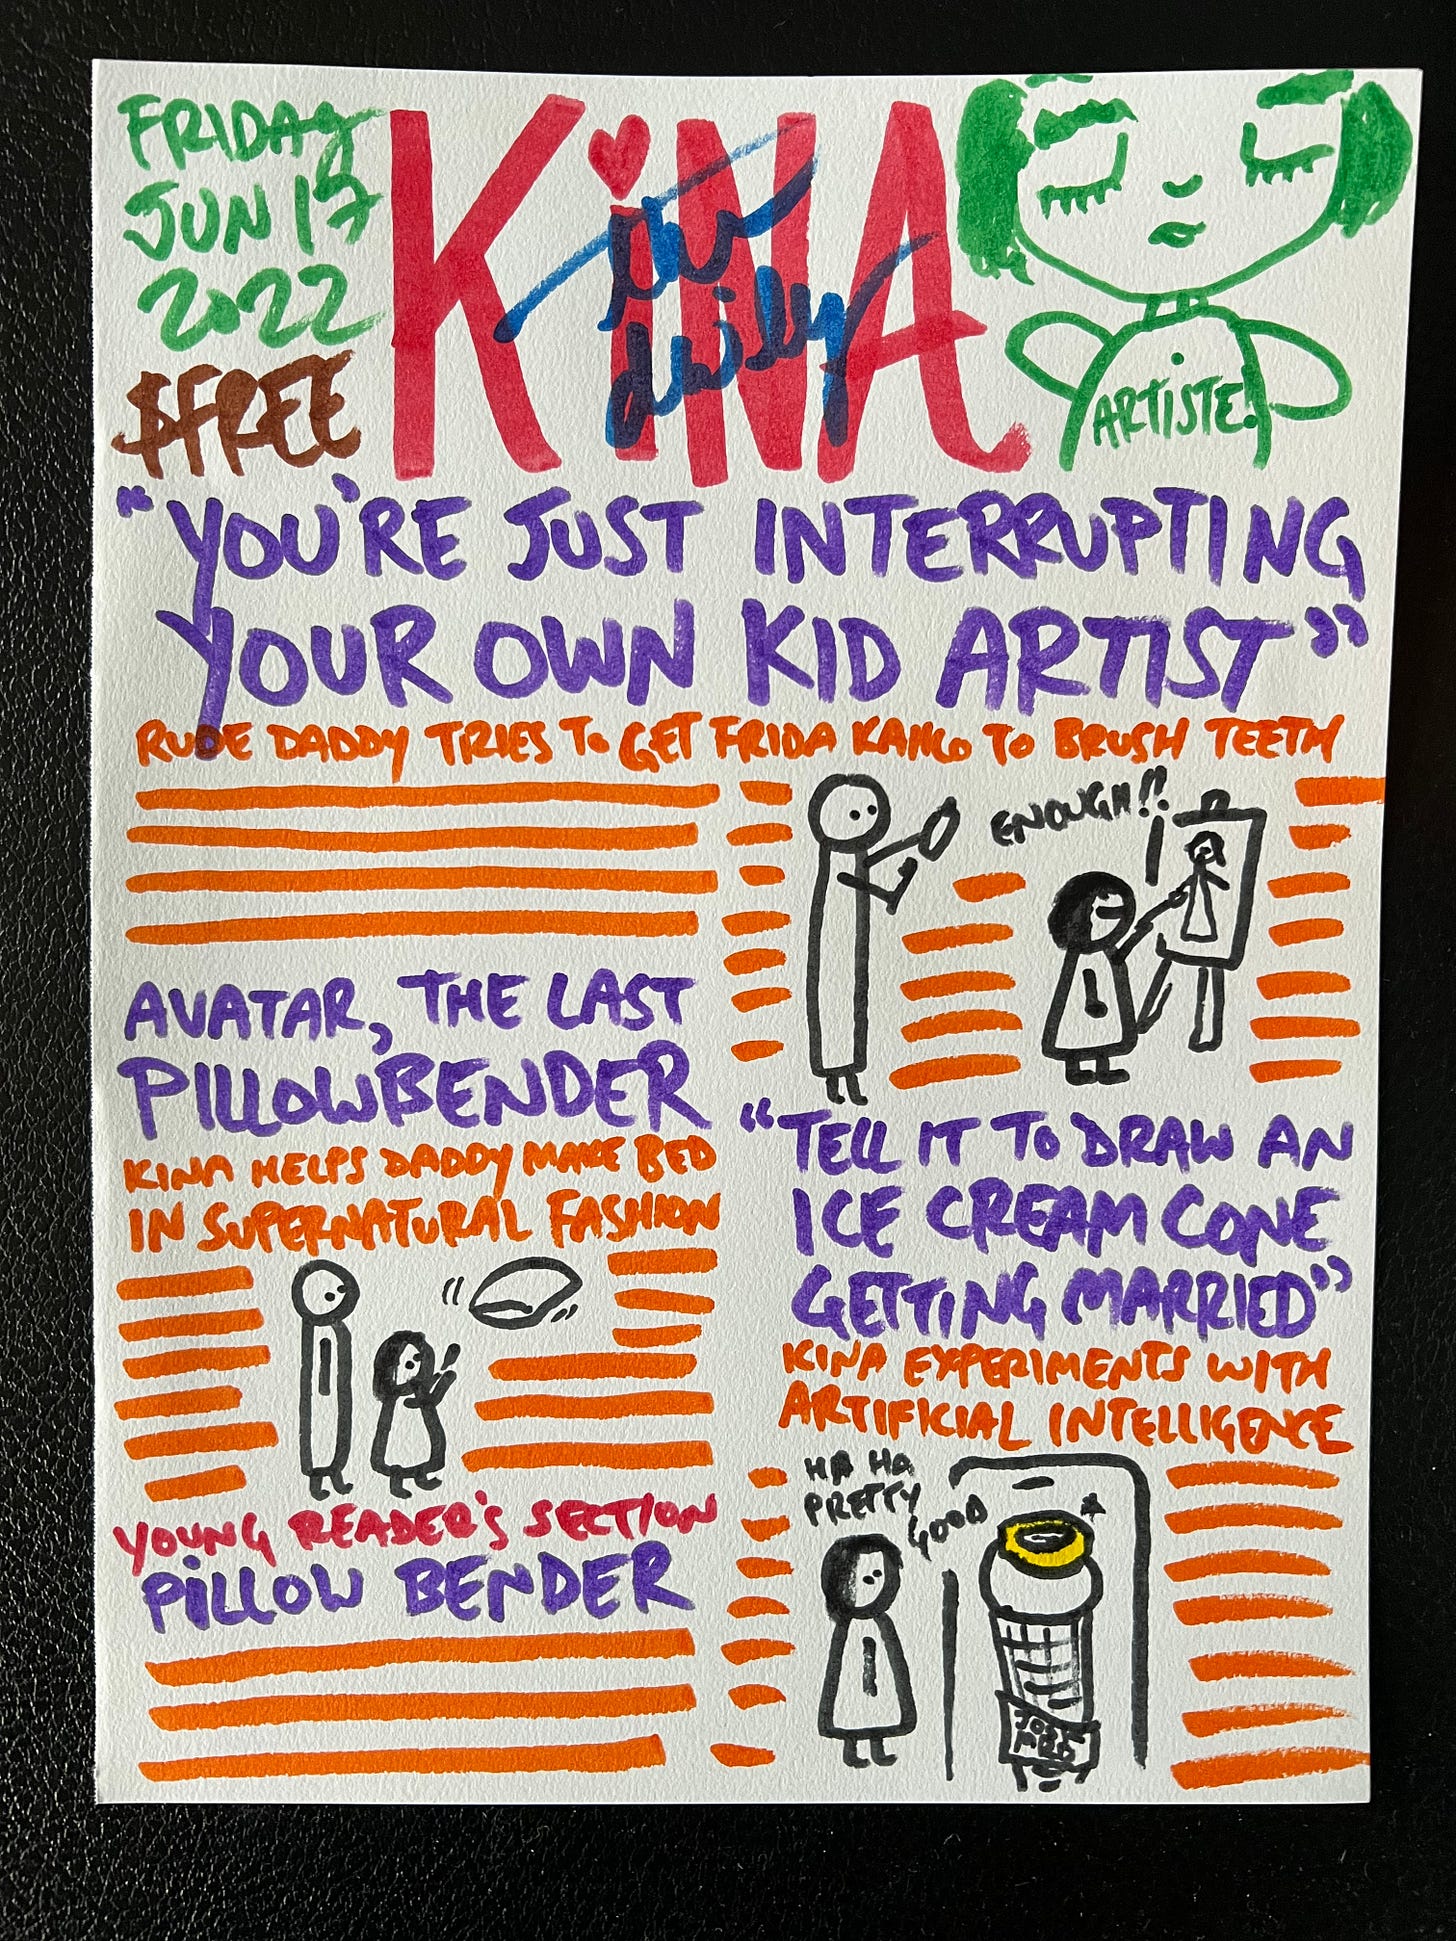 FRIDAY
JUN 17
2022
$FREE
KiNA
ARTISTE!
"YOU'RE JUST INTERRUPTING
YOUR OWN KID ARTIST"
RUDE DADDY TRIES TO GET FRIDA KAHLO TO BRUSH TEETH
ENOUGH!!
AVATAR, THE LAST
PILLOWBENDER
KINA HELPS DADDY MAKE BED
IN SUPERNATURAL FASHION
YOUNG READER'S SECTION
PiLLOW BENDER
"TELL IT TO DRAW AN
ICE CREAM CONE,
GETTING MARRIED"
KINA EXPERIMENTS WITH
ARTIFICIAL INTELLIGENCE
HA HA
PRETTY
GOOD
JUST
MRD